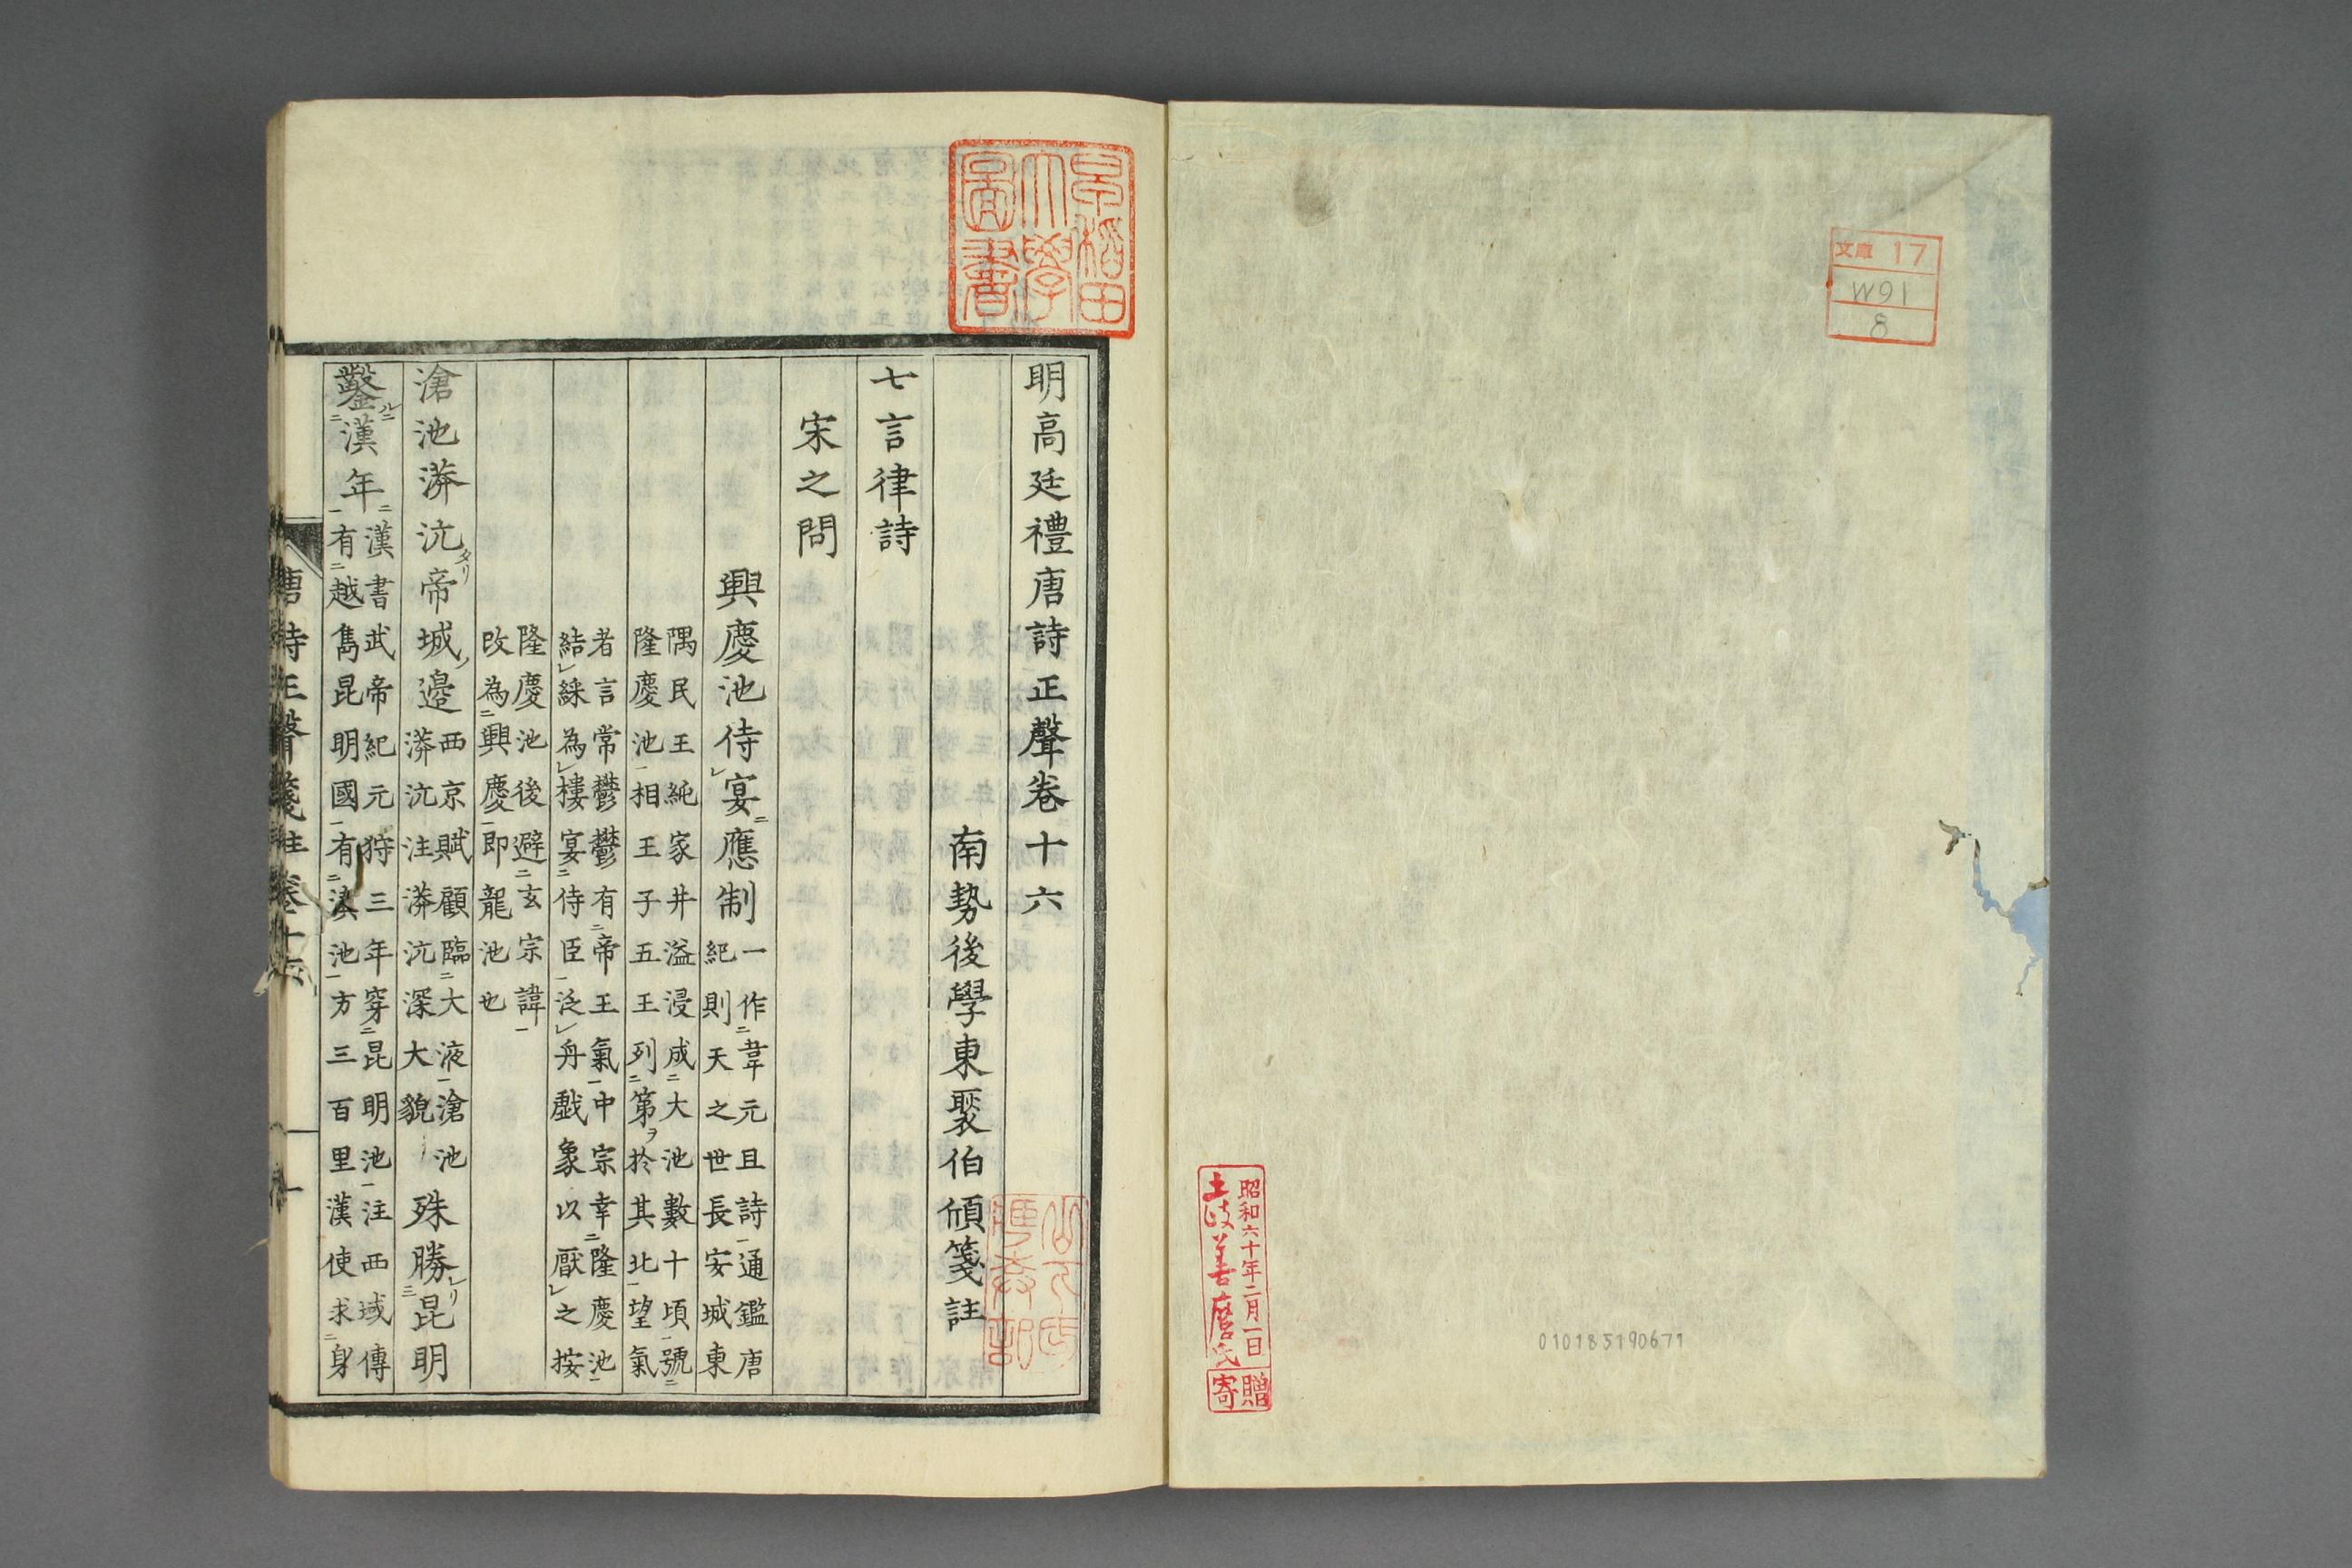 文庫 17
W91
8
昭和六十年二月一日
土岐善麿氏
寄贈
010185190671
早稲田
大學
圖書
明高廷禮唐詩正聲卷十六
南勢後學東褧伯頎箋註
七言律詩
宋之問
興慶池侍レ宴二應制
一作二韋元旦詩一通鑑唐
紀則天之世長安城東
隅民王純家井溢浸成二大池數十頃一號二
隆慶池一相王子五王列二第ヲ於其北一望氣
者言常鬱鬱有二帝王氣一中宗幸二隆慶池一
結レ綵為レ樓宴二侍臣一泛レ舟戲象以厭レ之按
隆慶池後避二玄宗諱一
改為二興慶一即龍池也
滄池漭沆タリ帝城ノ邊
西京賦顧臨二大液一滄池
漭沆注漭沆深大貌
殊勝レリ三昆明
鑿ルニ二漢年一
二漢書武帝紀元狩三年穿二昆明池一注西域傳
有二越雋昆明國一有二滇池一方三百里漢使求二身
唐詩正聲箋註卷十六
一